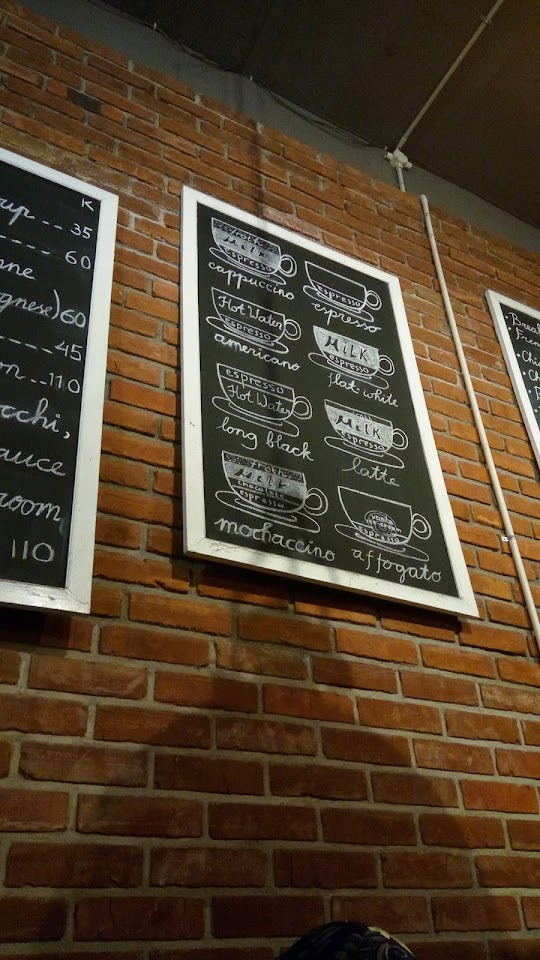 K
35
60
gnese) 60
45
110
cchi,
auce
room
110
Froth
Milk
espresso
cappuccino
espresso
espresso
Hot Water
espresso
americano
MiLK
espresso
flat-white
espresso
Hot Water
long black
MiLK
espresso
latte
Froth
Milk
chocolate
espresso
mochaccino
vanila
ice-cream
espresso
affogato